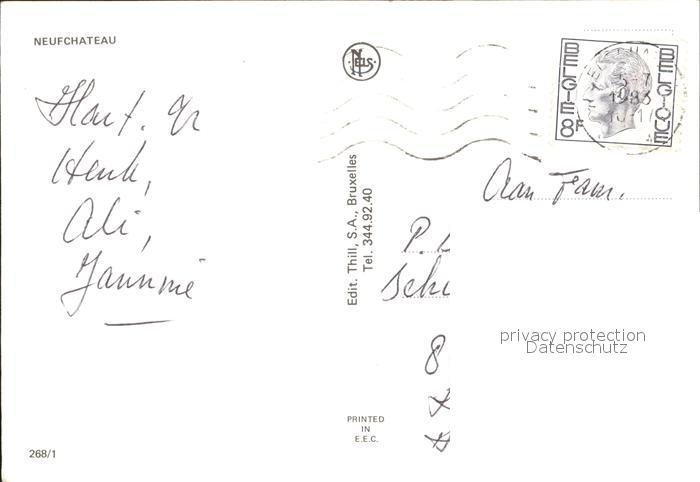 NEUFCHATEAU
NELS
BELGIE
8F
BELGIQUE
5-7
1983
Hart. gr
Henk,
Ali,
Jannnie
Edit. Thill, S.A., Bruxelles
Tel. 344.92.40
Aan Fam.
P.
Sch
8
privacy protection
Datenschutz
PRINTED
IN
E.E.C.
268/1